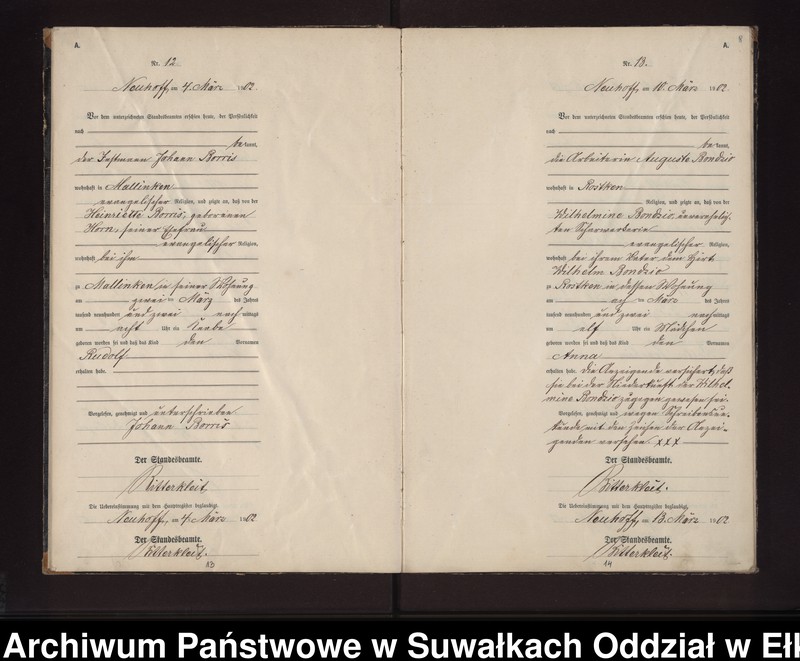 A.
Nr. 12.
Neuhoff, am 4. März 1902.
Vor dem unterzeichneten Standesbeamten erschien heute, der Persönlichkeit
nach
be kannt,
der Instmann Johann Borris
wohnhaft in Mallinken
evangelischer Religion, und zeigte an, daß von der
Henriette Borris, geborenen
Horn, seiner Ehefrau
evangelischer Religion,
wohnhaft bei ihm
zu Mallinken, in seiner Wohnung
am zwei ten März des Jahres
tausend neunhundert und zwei nach mittags
um acht Uhr ein Knabe
geboren worden sei und daß das Kind den Vornamen
Rudolf
erhalten habe.
Vorgelesen, genehmigt und unterschrieben
Johann Borris
Der Standesbeamte.
Ritterkleit
Die Uebereinstimmung mit dem Hauptregister beglaubigt.
Neuhoff, am 4. März 1902
Der Standesbeamte.
Ritterkleit.
13
8
A.
Nr. 13.
Neuhoff, am 10. März 1902.
Vor dem unterzeichneten Standesbeamten erschien heute, der Persönlichkeit
nach
be kannt,
die Arbeiterin Auguste Bondzio
wohnhaft in Rostken
Religion, und zeigte an, daß von der
Wilhelmine Bondzio, unverehelich-
ten Scharwerkerin
evangelischer Religion,
wohnhaft bei ihrem Vater dem Hirt
Wilhelm Bondzio
zu Rostken in dessen Wohnung
am ach ten März des Jahres
tausend neunhundert und zwei nach mittags
um elf Uhr ein Mädchen
geboren worden sei und daß das Kind den Vornamen
Anna
erhalten habe. Die Anzeigende versichert, daß
sie bei der Niederkunft der Wilhel-
mine Bondzio zugegen gewesen sei.
Vorgelesen, genehmigt und wegen Schreibensun-
kunde mit den Zeichen der Anzei-
genden versehen. xxx
Der Standesbeamte.
Ritterkleit.
Die Uebereinstimmung mit dem Hauptregister beglaubigt.
Neuhoff, am 13. März 1902
Der Standesbeamte.
Ritterkleit.
14
Archiwum Państwowe w Suwałkach Oddział w Ełk